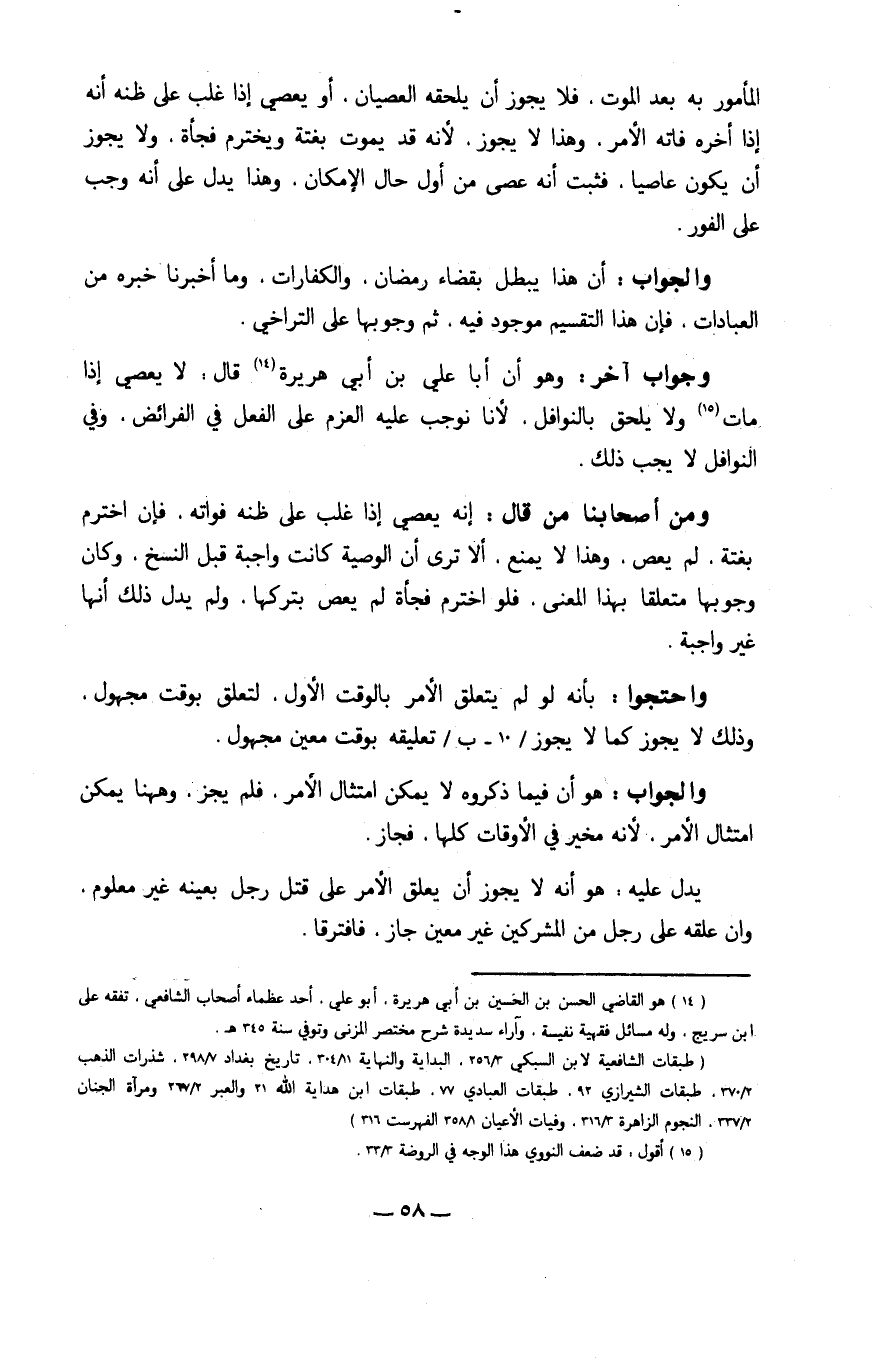 المأمور به بعد الموت ، فلا يجوز أن يلحقه العصيان ، أو يعصي إذا غلب على ظنه أنه
إذا أخره فاته الأمر ، وهذا لا يجوز ، لأنه قد يموت بغتة ويخترم فجأة ، ولا يجوز
أن يكون عاصيا ، فثبت أنه عصى من أول حال الإمكان ، وهذا يدل على أنه وجب
على الفور .
والجواب : أن هذا يبطل بقضاء رمضان ، والكفارات ، وما أخبرنا خبره من
العبادات ، فإن هذا التقسيم موجود فيه ، ثم وجوبها على التراخي .
وجواب آخر : وهو أن أبا علي بن أبي هريرة (١٤) قال : لا يعصي إذا
مات (١٥) ولا يلحق بالنوافل ، لأنا نوجب عليه العزم على الفعل في الفرائض ، وفي
النوافل لا يجب ذلك .
ومن أصحابنا من قال : إنه يعصي إذا غلب على ظنه فواته ، فإن اخترم
بغتة ، لم يعص ، وهذا لا يمنع ، ألا ترى أن الوصية كانت واجبة قبل النسخ ، وكان
وجوبها متعلقا بهذا المعنى ، فلو اخترم فجأة لم يعص بتركها ، ولم يدل ذلك أنها
غير واجبة .
واحتجوا : بأنه لو لم يتعلق الأمر بالوقت الأول ، لتعلق بوقت مجهول ،
وذلك لا يجوز كما لا يجوز / ١٠ ـ ب / تعليقه بوقت معين مجهول .
والجواب : هو أن فيما ذكروه لا يمكن امتثال الأمر ، فلم يجز ، وههنا يمكن
امتثال الأمر ، لأنه مخير في الأوقات كلها ، فجاز .
يدل عليه : هو أنه لا يجوز أن يعلق الأمر على قتل رجل بعينه غير معلوم ،
وان علقه على رجل من المشركين غير معين جاز ، فافترقا .
( ١٤ ) هو القاضي الحسن بن الحسين بن أبي هريرة ، أبو علي ، أحد عظماء أصحاب الشافعي ، تفقه على
ابن سريج ، وله مسائل فقهية نفيسة ، وآراء سديدة شرح مختصر المزنى وتوفي سنة ٣٤٥ هـ .
( طبقات الشافعية لابن السبكي ٢٥٦/٣ ، البداية والنهاية ٣٠٤/١١ ، تاريخ بغداد ٢٩٨/٧ ، شذرات الذهب
٣٧٠/٢ ، طبقات الشيرازي ٩٢ ، طبقات العبادي ٧٧ ، طبقات ابن هداية الله ٢١ والعبر ٢٦٧/٢ ومرآة الجنان
٣٣٧/٢ ، النجوم الزاهرة ٣١٦/٣ ، وفيات الأعيان ٣٥٨/١ الفهرست ٣١٦ )
( ١٥ ) أقول ، قد ضعف النووي هذا الوجه في الروضة ٣٣/٣ .
— ٥٨ —